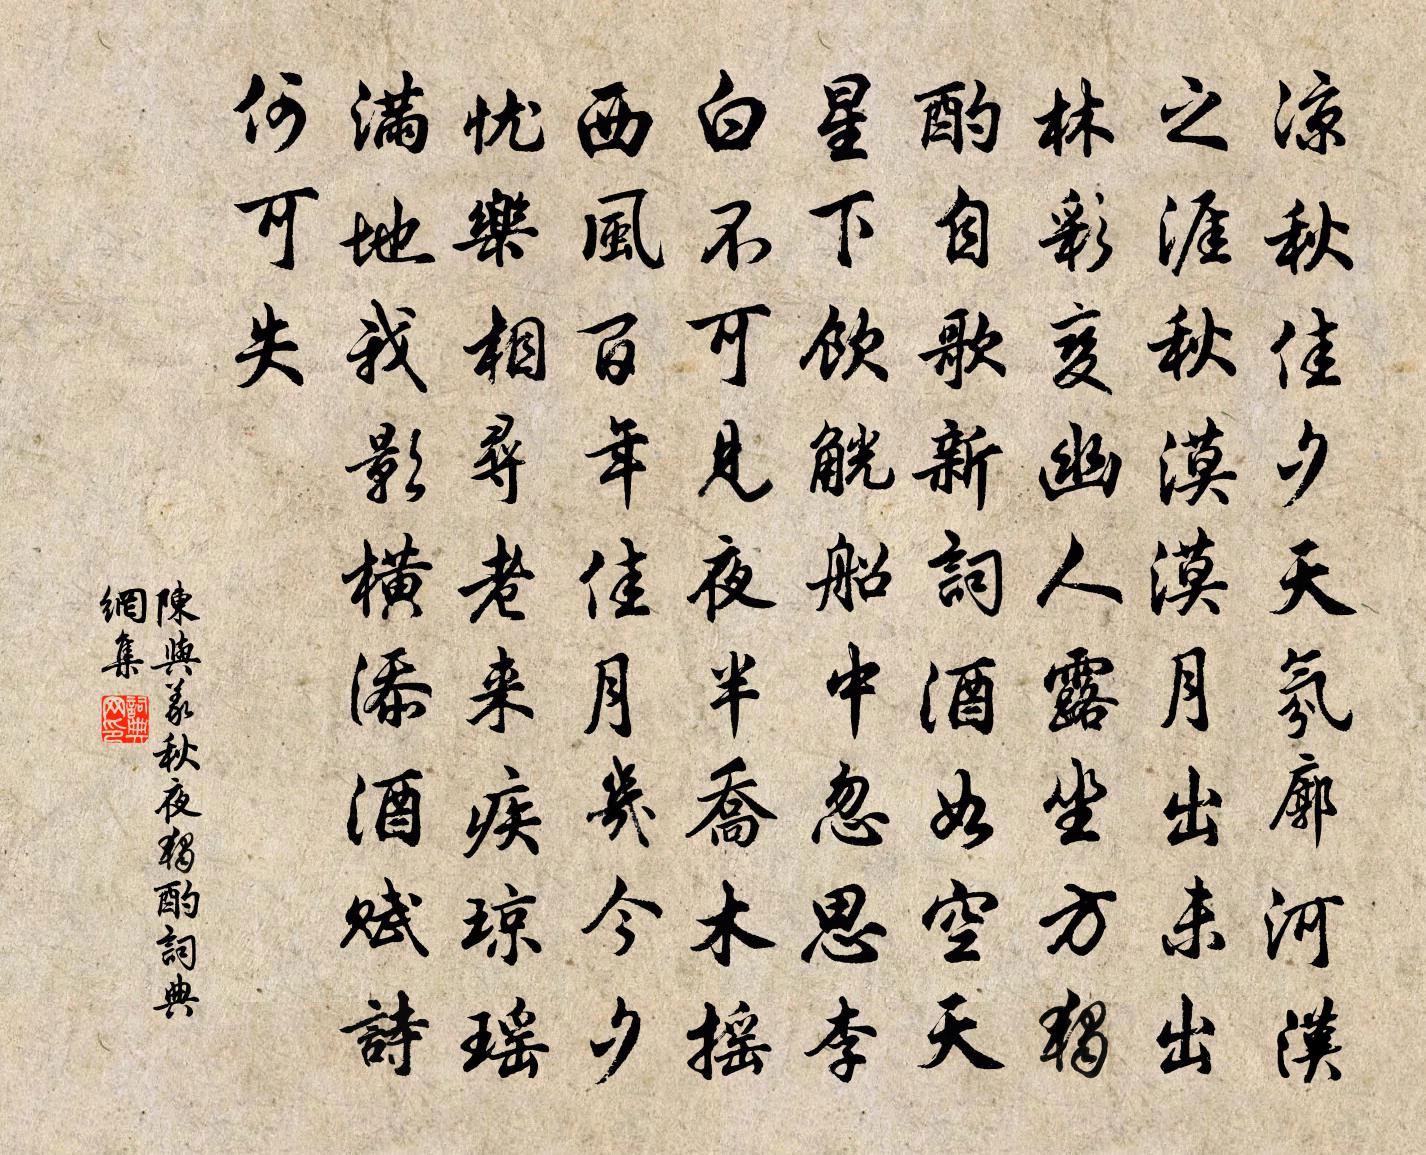 涼秋佳夕天氛廓河漢
之涯秋漠漠月出未出
林彩變幽人露坐方獨
酌自歌新詞酒如空天
星下飲觥船中忽思李
白不可見夜半喬木搖
西風百年佳月幾今夕
忧樂相尋老来疾瓊瑶
滿地我影橫添酒賦詩
何可失
陳與義秋夜獨酌詞典
網集
詞典
网印